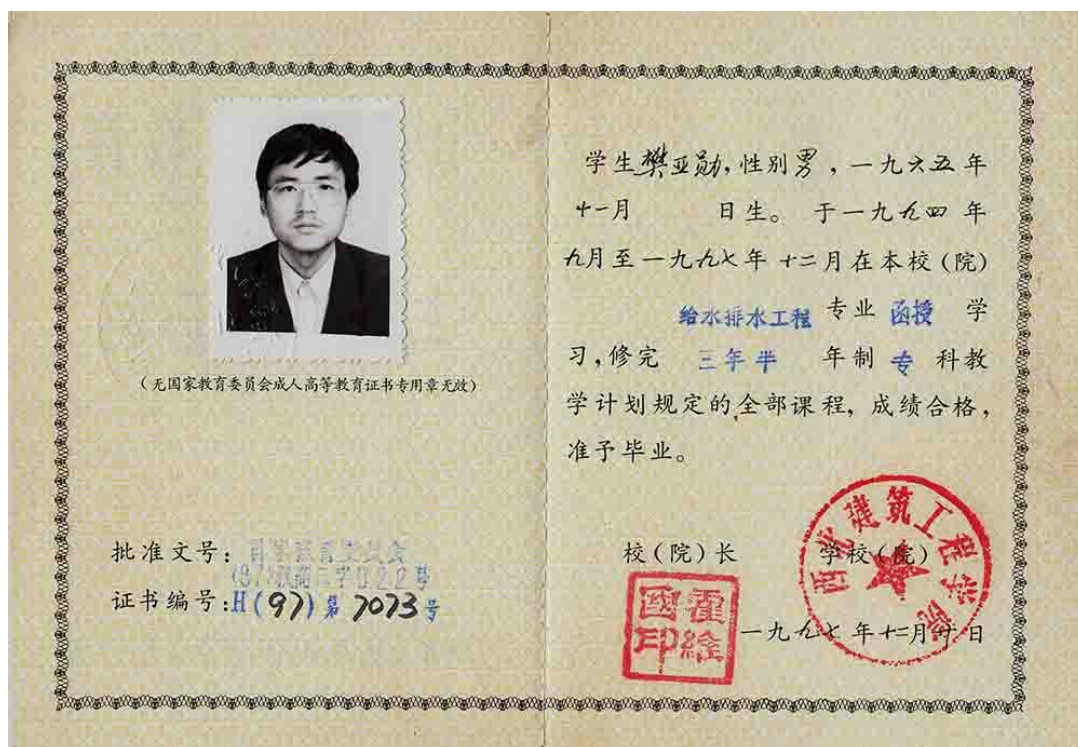 （无国家教育委员会成人高等教育证书专用章无效）
批准文号：国家教育委员会
(87)教高三字022号
证书编号：H(97)第7073号
学生樊亚勋，性别男，一九六五年
十一月 日生。于一九九四年
九月至一九九七年十二月在本校（院）
给水排水工程 专业 函授 学
习，修完 三年半 年制 专 科教
学计划规定的全部课程，成绩合格，
准予毕业。
校（院）长 学校（院）
西北建筑工程学院
霍維國印
一九九七年十二月廿日